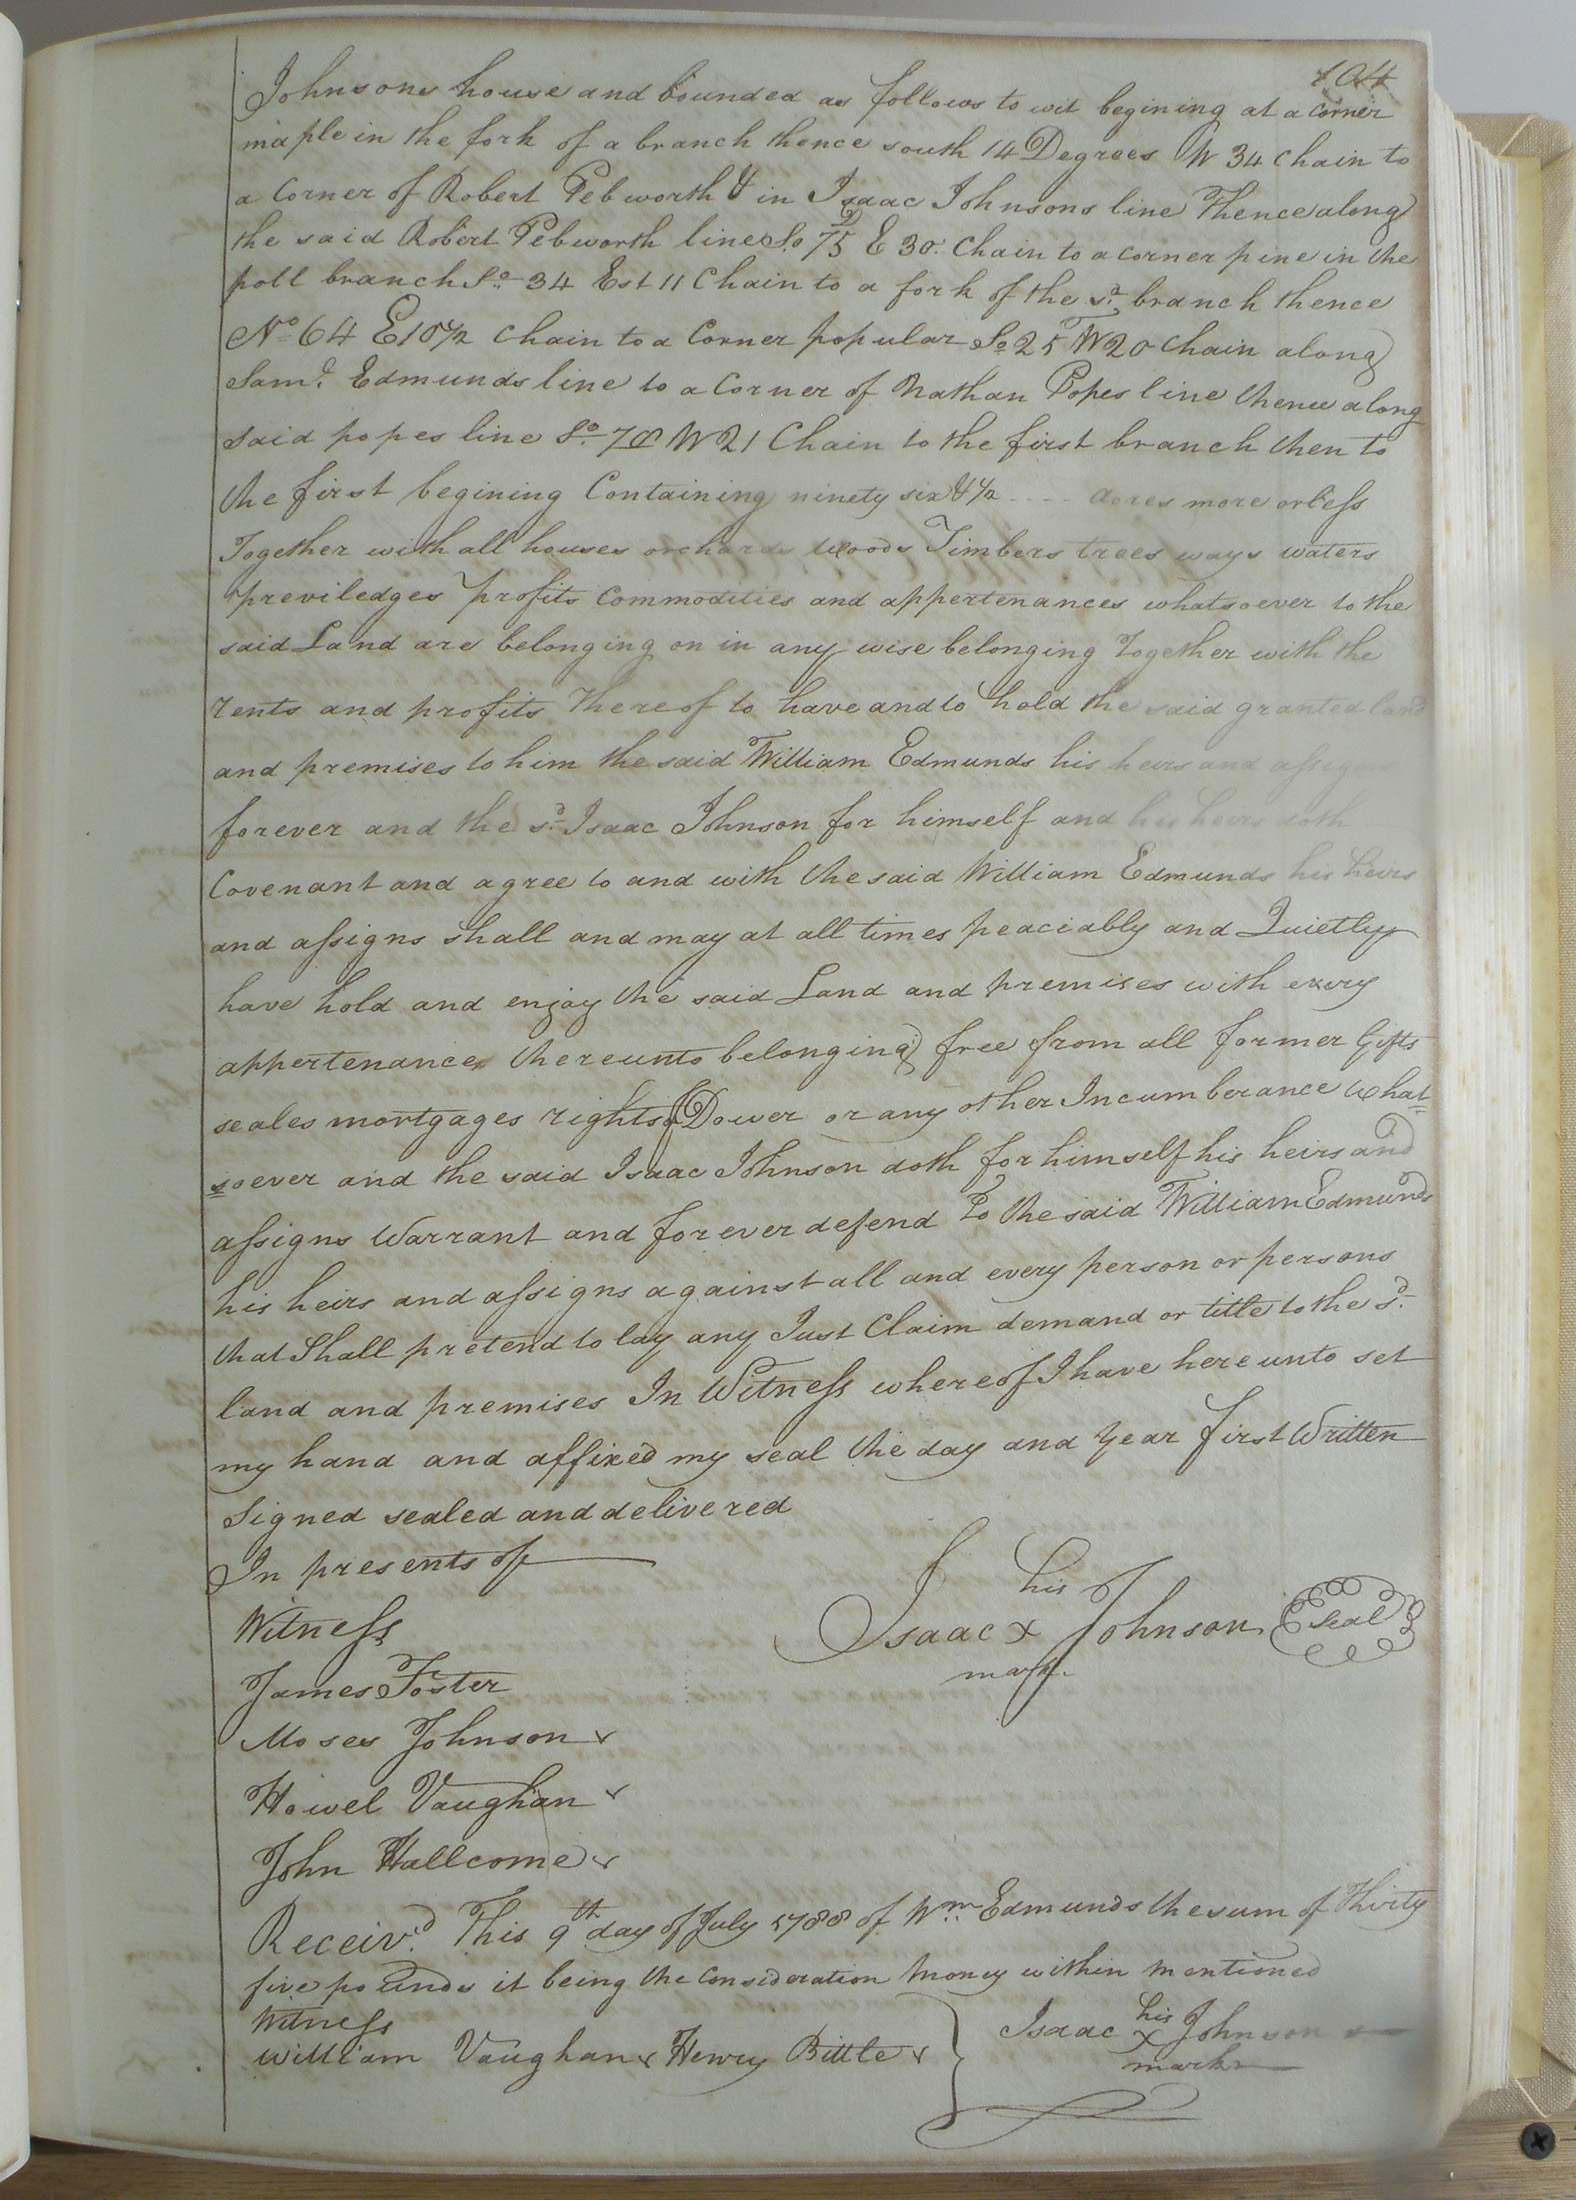 104
Johnsons house and bounded as follows to wit begining at a corner
maple in the fork of a branch thence south 14 Degrees W 34 chain to
a Corner of Robert Pebworth & in Isaac Johnsons line Thence along
the said Robert Pebworth line So 75 D E 30 Chain to a corner pine in the
poll branch So 34 Est 11 Chain to a fork of the sd branch thence
No 64 E 10 1/2 Chain to a Corner popular So 25 W 20 Chain along
Saml Edmunds line to a Corner of Nathan Popes line thence along
said popes line So 78 W 21 Chain to the first branch then to
the first begining Containing ninety six & 1/2 .... acres more or less
Together with all houses orchards woods Timbers trees ways waters
previledges profits Commodities and appertenances whatsoever to the
said Land are belonging on in any wise belonging Together with the
rents and profits thereof to have and to hold the said granted land
and premises to him the said William Edmunds his heirs and assigns
forever and the sd Isaac Johnson for himself and his heirs doth
Covenant and agree to and with the said William Edmunds his heirs
and assigns shall and may at all times peaciably and Quietly
have hold and enjoy the said Land and premises with every
appertenance thereunto belonging free from all former Gifts
seales mortgages rights of Dower or any other Incumberance what=
=soever and the said Isaac Johnson doth for himself his heirs and
assigns Warrant and forever defend To the said William Edmunds
his heirs and assigns against all and every person or persons
that Shall pretend to lay any Just Claim demand or title to the sd
land and premises In Witness whereof I have hereunto set
my hand and affixed my seal the day and year first Written
Signed sealed and delivered
In presents of
his
Isaac x Johnson Seal
mark
Witness
James Foster
Moses Johnson
Howel Vaughan
John Hallcome
Receivd This 9th day of July 1788 of Wm Edmunds the sum of Thirty
five pounds it being the Consideration money within mentioned
Witness
William Vaughan Henry Bittle
his
Isaac x Johnson
mark